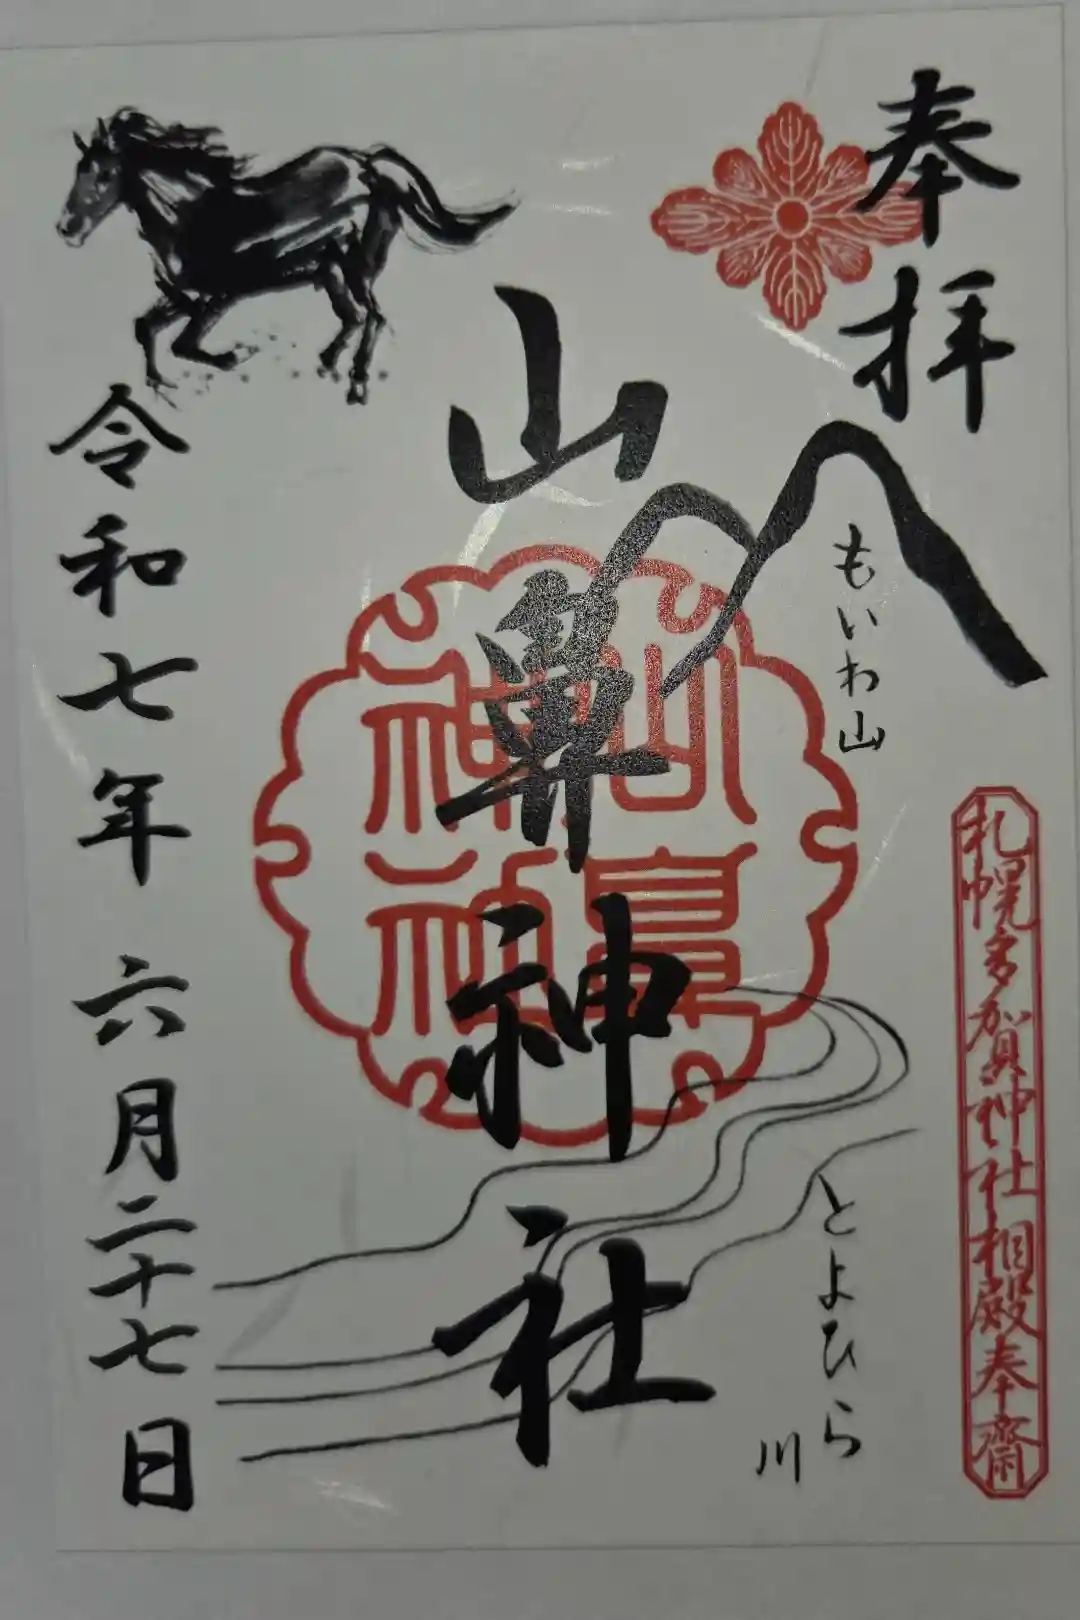 奉拝
もいわ山
とよひら川
札幌多賀神社相殿奉齋
山鼻神社
山鼻
神社
令和七年六月二十七日